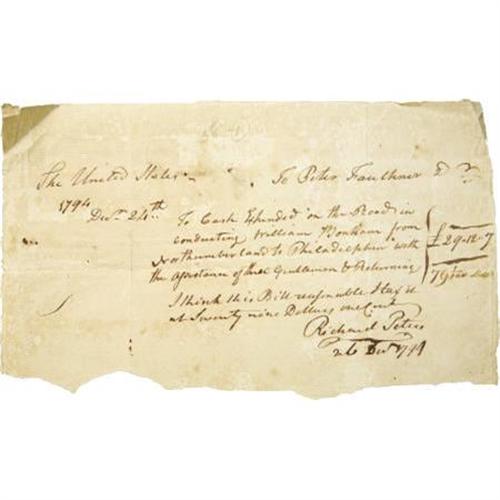 The United States To Peter Faulkner Dr
1794
Decr. 24th To Cash Expended on the Road in
conducting William Bonham from
Northumberland to Philadelphia with £29-12-7
the Assistance of three Gentlemen & Returning 79
I think this Bill reasonable & tax it
at Seventy nine Dollars one Cent
Richard Peters
26 Decr 1794